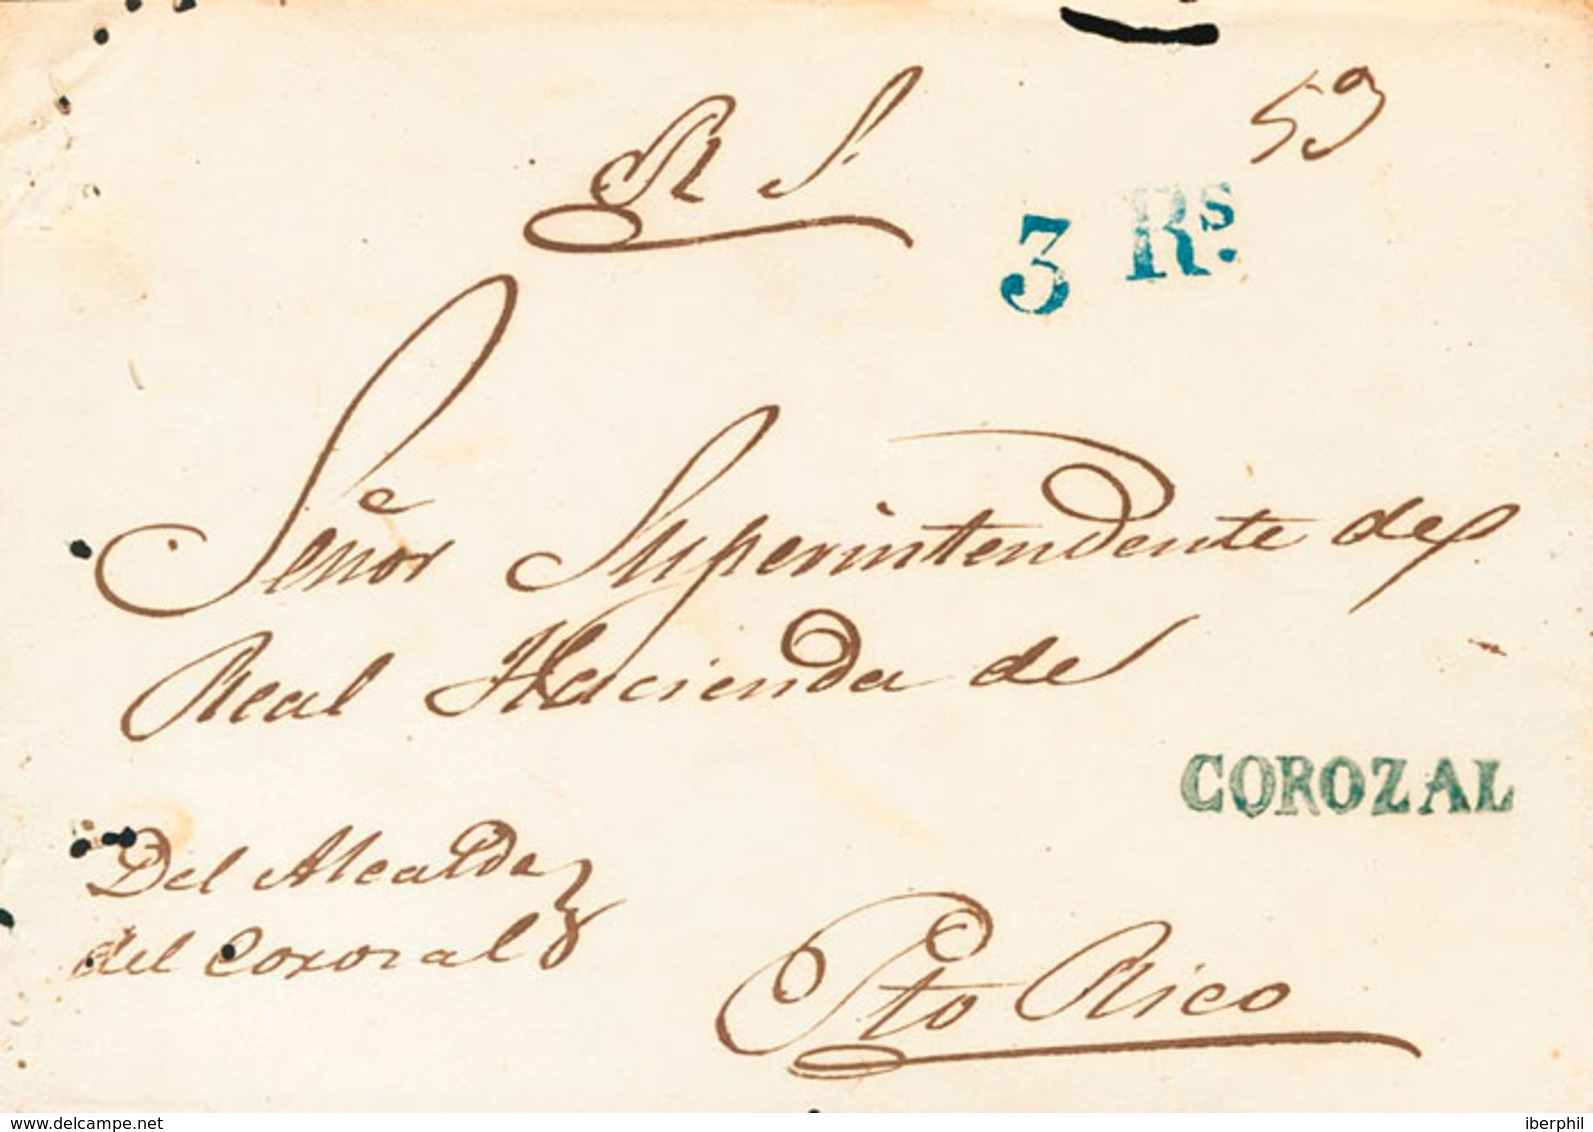 R. S.
59
3 Rs.
Señor Superintendente de
Real Hacienda de
COROZAL
Del Alcalde
del Corozal
Pto Rico
www.delcampe.net
iberphil